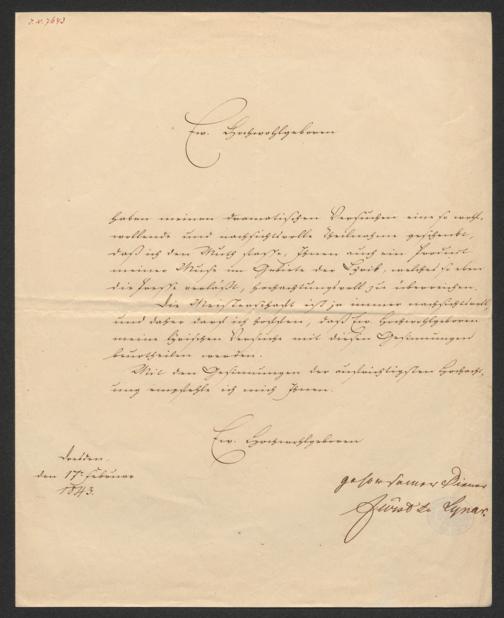 J.N. 7643
Ew. Hochwohlgeboren
haben meinen dramatischen Versuchen eine so wohl-
wollende und nachsichtsvolle Theilnahme geschenkt,
daß ich den Muth fasse, Ihnen auch ein Product
meiner Muse im Gebiete der Lyrik, welches so eben
die Presse verläßt, hochachtungsvoll zu überreichen.
Die Meisterschaft ist ja immer nachsichtsvoll,
und daher darf ich hoffen, daß Ew. Hochwohlgeboren
meine lyrischen Versuche mit diesen Gesinnungen
beurtheilen werden.
Mit den Gesinnungen der aufrichtigsten Hochacht-
ung empfehle ich mich Ihnen.
Ew. Hochwohlgeboren
Dresden.
den 17t. Februar
1843.
gehorsamer Diener
Fürst zu Lynar